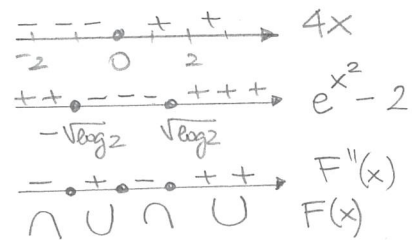 − − − + + 4x
-2 0 2
+ + − − − + + + e^{x^2} − 2
-√log2 √log2
− + − + + F''(x)
∩ ∪ ∩ ∪ F(x)